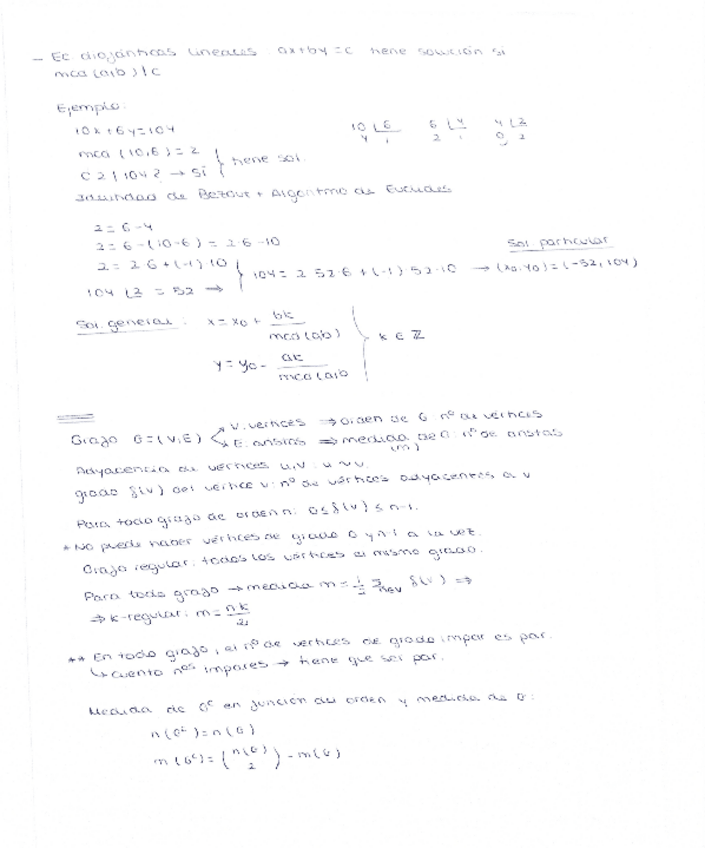 - Ec. diofánticas lineales: ax+by=c tiene solución si
mcd(a,b) | c
Ejemplo:
10x+6y=104
mcd(10,6)=2
¿ 2|104? → Sí } tiene sol.
10 ⌊6   6 ⌊4   4 ⌊2
4 1   2 1   0 2
Identidad de Bezout + Algoritmo de Euclides
2=6-4
2=6-(10-6) = 2·6-10
2= 2·6+(-1)·10
104 ⌊2 = 52 →
} 104= 2·52·6+(-1)·52·10 → (x0,y0)=(-52,104)
Sol. particular
Sol. general: x=x0 + bk/mcd(a,b)
y=y0 - ak/mcd(a,b
} k ∈ ℤ
Grafo G=(V,E)
V. vértices ⇒ orden de G nº de vértices
E. aristas ⇒ medida de G: nº de aristas
(m)
Adyacencia de vértices u,v: u~v.
grado δ(v) del vértice v: nº de vértices adyacentes a v
Para todo grafo de orden n: 0≤δ(v)≤n-1.
* No puede haber vértices de grado 0 y n-1 a la vez.
Grafo regular: todos los vértices el mismo grado.
Para todo grafo → medida m= 1/2 Σ v∈V δ(v) ⇒
⇒ k-regular: m= nk/2
** En todo grafo, el nº de vértices de grado impar es par.
↳ cuento nos impares → tiene que ser par.
Medida de Gc en función del orden y medida de G:
n(Gc)=n(G)
m(Gc)= (n(G) 2) - m(G)